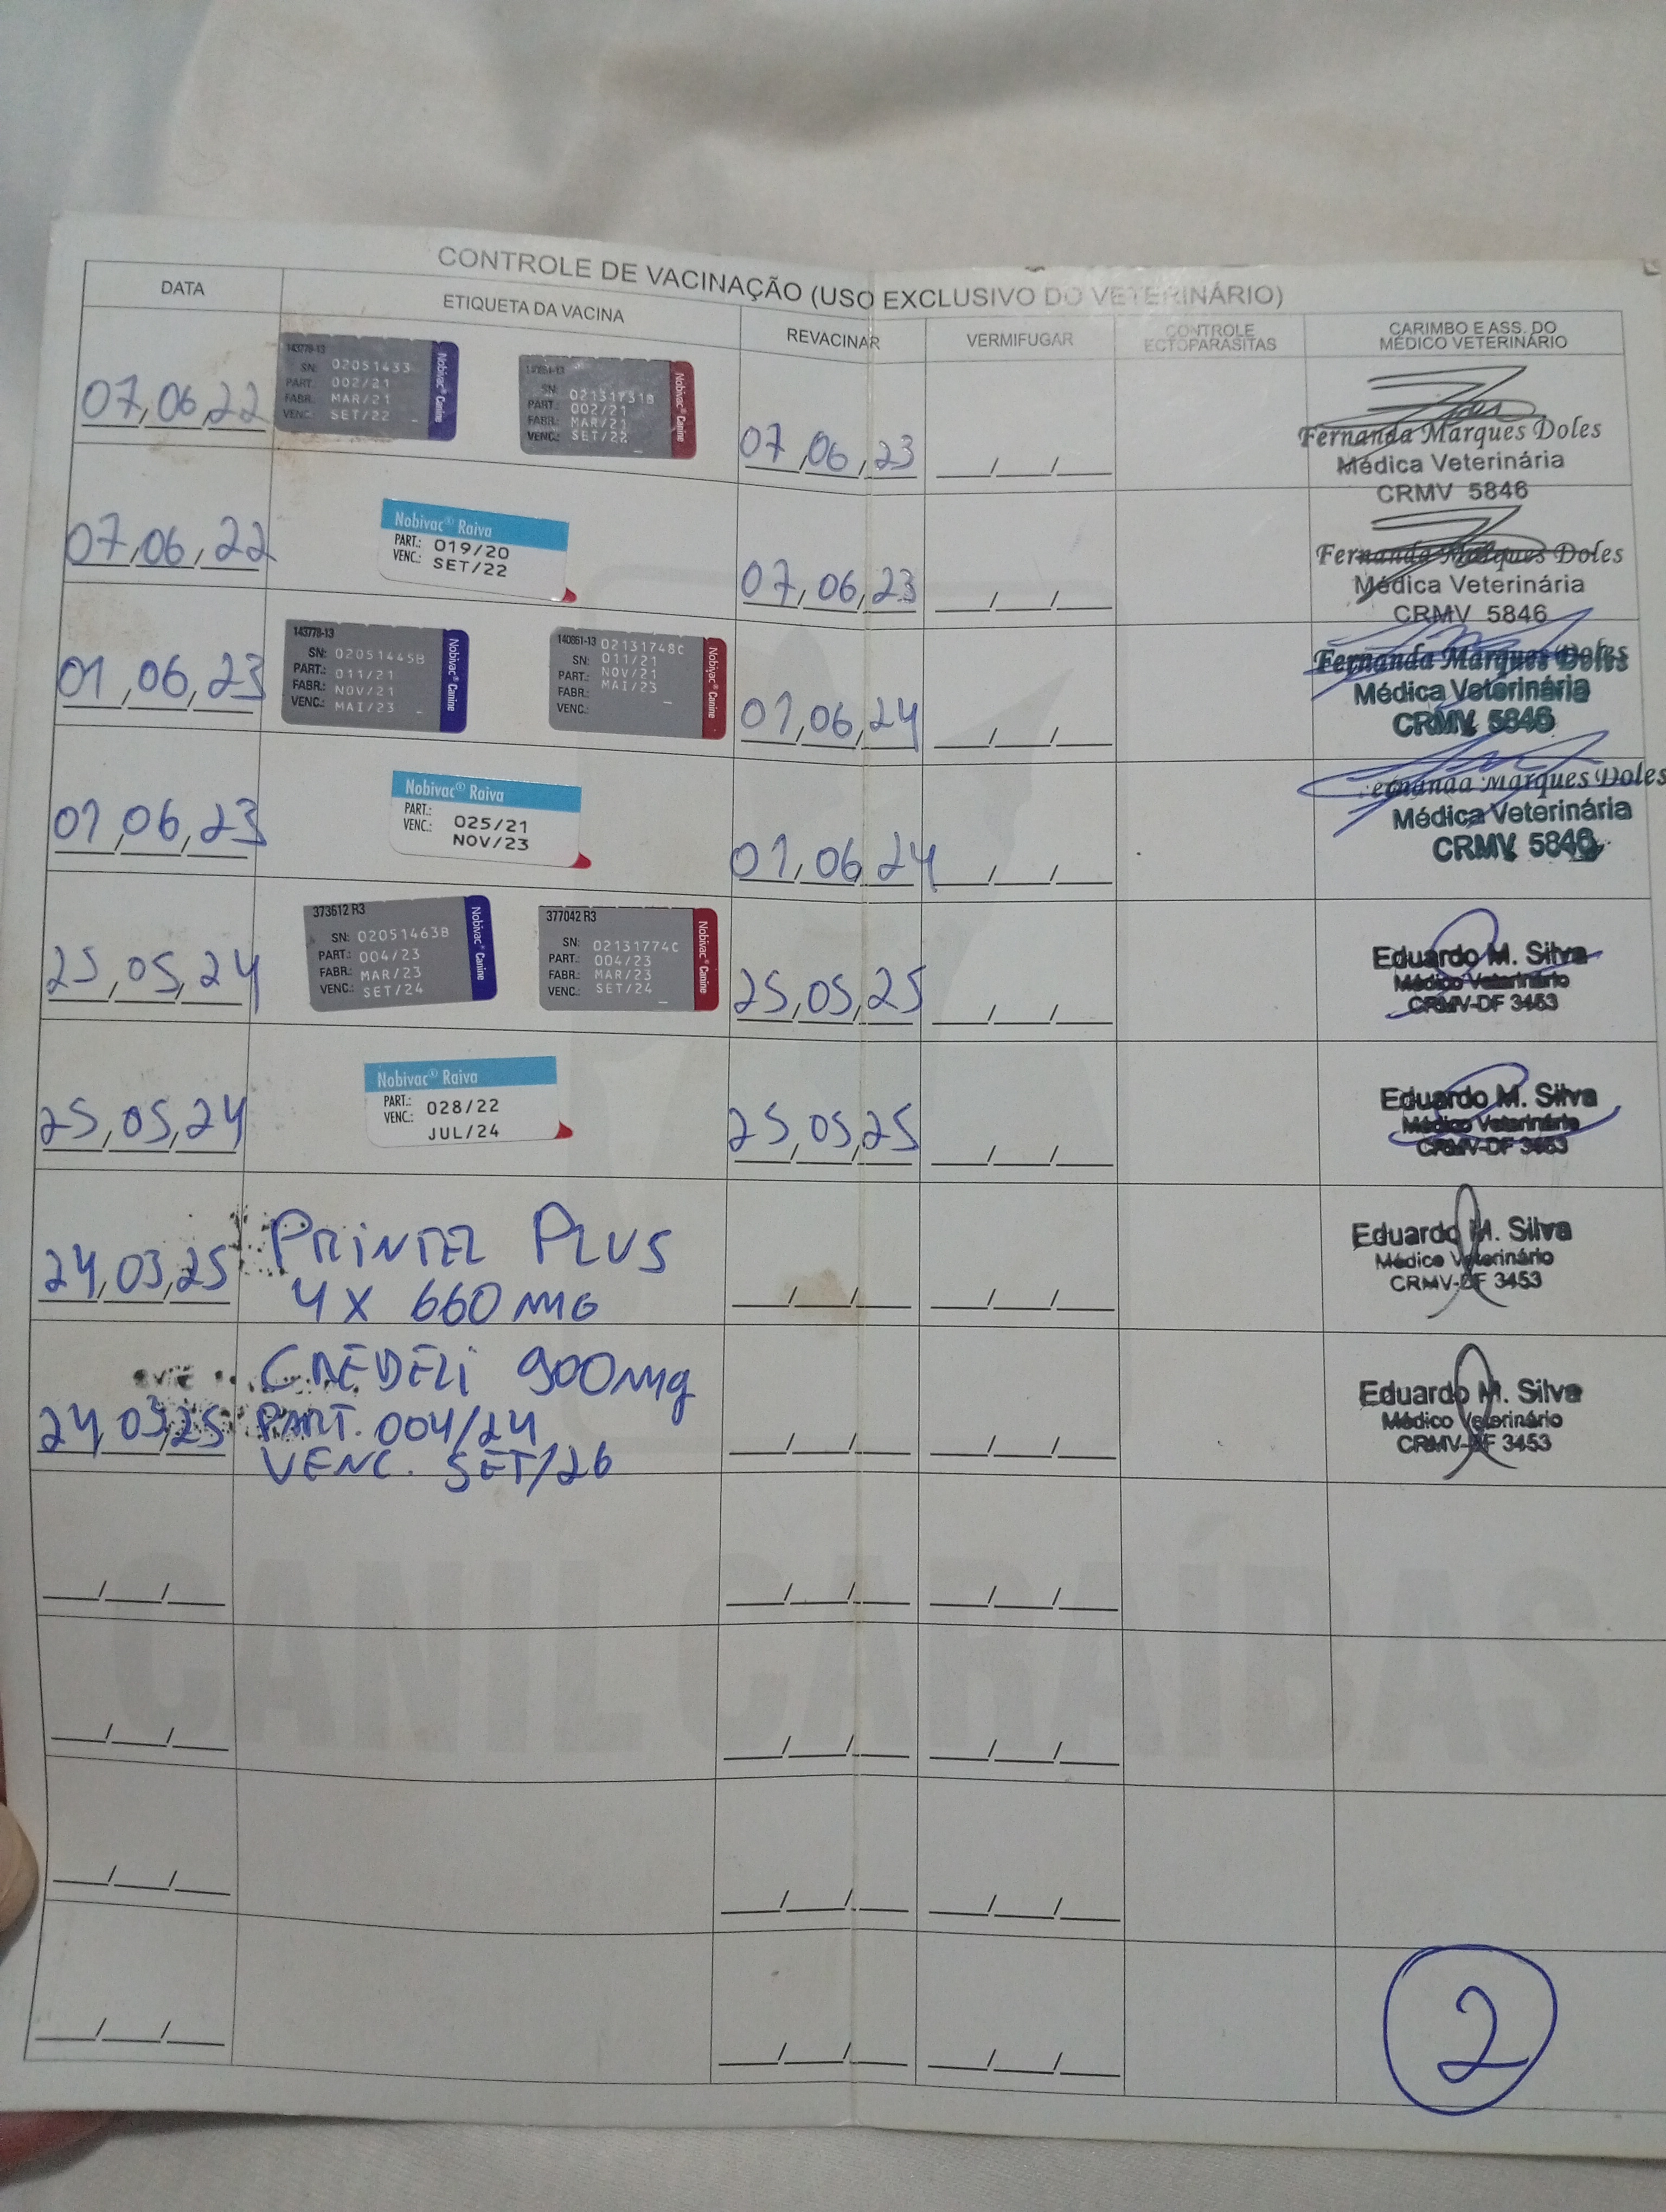 CONTROLE DE VACINAÇÃO (USO EXCLUSIVO DO VETERINÁRIO)
DATA
ETIQUETA DA VACINA
REVACINAR
VERMIFUGAR
CONTROLE
ECTOPARASITAS
CARIMBO E ASS. DO
MÉDICO VETERINÁRIO
07/06/22
143778-13
SN: 02051433
PART.: 002/21
FABR.: MAR/21
VENC.: SET/22
Nobivac® Canine
SN:
PART.: 002/21
FABR.: MAR/21
VENC.: SET/22
Nobivac® Canine
07/06/23
Fernanda Marques Doles
Médica Veterinária
CRMV 5846
07/06/22
Nobivac® Raiva
PART.: 019/20
VENC.: SET/22
07/06/23
Fernanda Marques Doles
Médica Veterinária
CRMV 5846
01/06/23
143778-13
SN: 02051445B
PART.: 011/21
FABR.: NOV/21
VENC.: MAI/23
Nobivac® Canine
140861-13 02131748C
SN: 011/21
PART.: NOV/21
FABR.: MAI/23
VENC.:
Nobivac® Canine
01/06/24
Fernanda Marques Doles
Médica Veterinária
CRMV 5846
01/06/23
Nobivac® Raiva
PART.: 025/21
VENC.: NOV/23
01/06/24
Fernanda Marques Doles
Médica Veterinária
CRMV 5846
25/05/24
373612 R3
SN: 02051463B
PART.: 004/23
FABR.: MAR/23
VENC.: SET/24
Nobivac® Canine
377042 R3
SN: 02131774C
PART.: 004/23
FABR.: MAR/23
VENC.: SET/24
Nobivac® Canine
25/05/25
Eduardo M. Silva
Médico Veterinário
CRMV-DF 3453
25/05/24
Nobivac® Raiva
PART.: 028/22
VENC.: JUL/24
25/05/25
Eduardo M. Silva
Médico Veterinário
CRMV-DF 3453
24/03/25
PRINTEL PLUS
4 X 660 MG
Eduardo M. Silva
Médico Veterinário
CRMV-DF 3453
24/03/25
CREDELI 900mg
PART. 004/24
VENC. SET/26
Eduardo M. Silva
Médico Veterinário
CRMV-DF 3453
CANIL CARAÍBAS
2